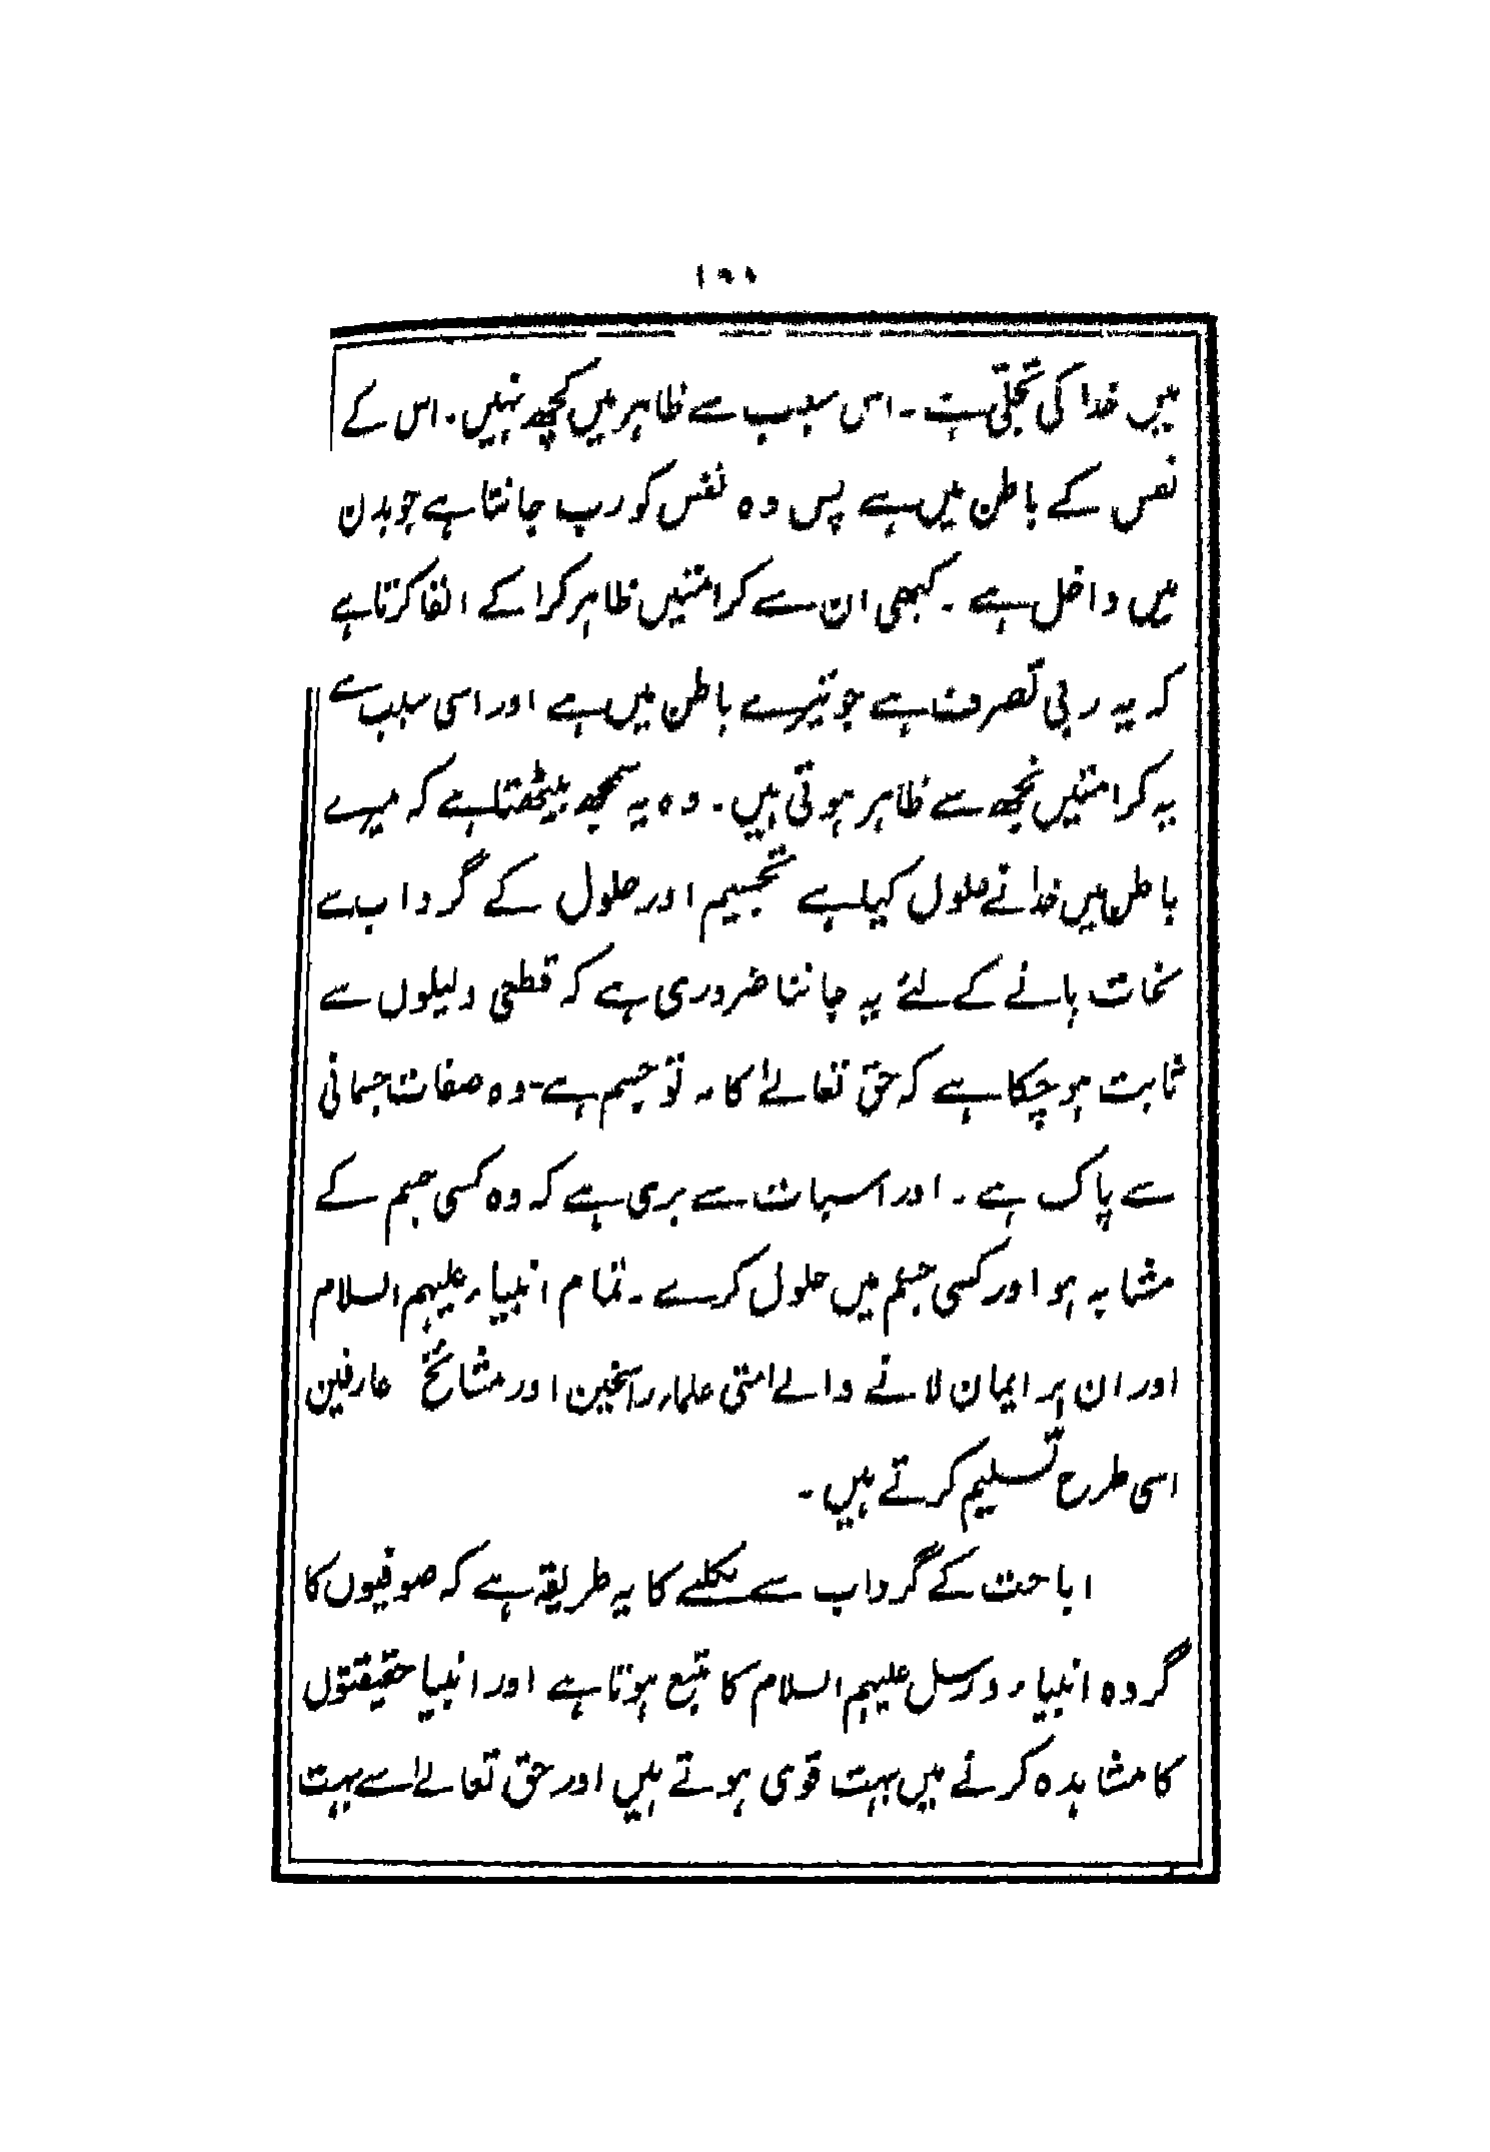 میں خدا کی تجلی ہے۔ اس سبب سے ظاہر میں کچھ نہیں۔ اس کے
نفس کے باطن میں ہے پس وہ نفس کو رب جانتا ہے جو بدن
میں داخل ہے۔ کبھی ان سے کرامتیں ظاہر کرا کے القا کرتا ہے
کہ یہ ربی تصرف ہے جو تیرے باطن میں ہے اور اسی سبب سے
یہ کرامتیں تجھ سے ظاہر ہوتی ہیں۔ وہ یہ سمجھ بیٹھتا ہے کہ میرے
باطن میں خدا نے حلول کیا ہے تجسیم اور حلول کے گرداب سے
نجات پانے کے لئے یہ جاننا ضروری ہے کہ قطعی دلیلوں سے
ثابت ہو چکا ہے کہ حق تعالےٰ کا نہ تو جسم ہے۔ وہ صفات جسمانی
سے پاک ہے۔ اور اس بات سے بری ہے کہ وہ کسی جسم کے
مشابہ ہو اور کسی جسم میں حلول کرے۔ تمام انبیاء علیہم السلام
اور ان پر ایمان لانے والے امتی علماء راسخین اور مشائخ عارفین
اسی طرح تسلیم کرتے ہیں۔
اباحت کے گرداب سے نکلنے کا یہ طریقہ ہے کہ صوفیوں کا
گروہ انبیاء و رسل علیہم السلام کا متبع ہوتا ہے اور انبیا حقیقتوں
کا مشاہدہ کرنے میں بہت قوی ہوتے ہیں اور حق تعالےٰ سے بہت